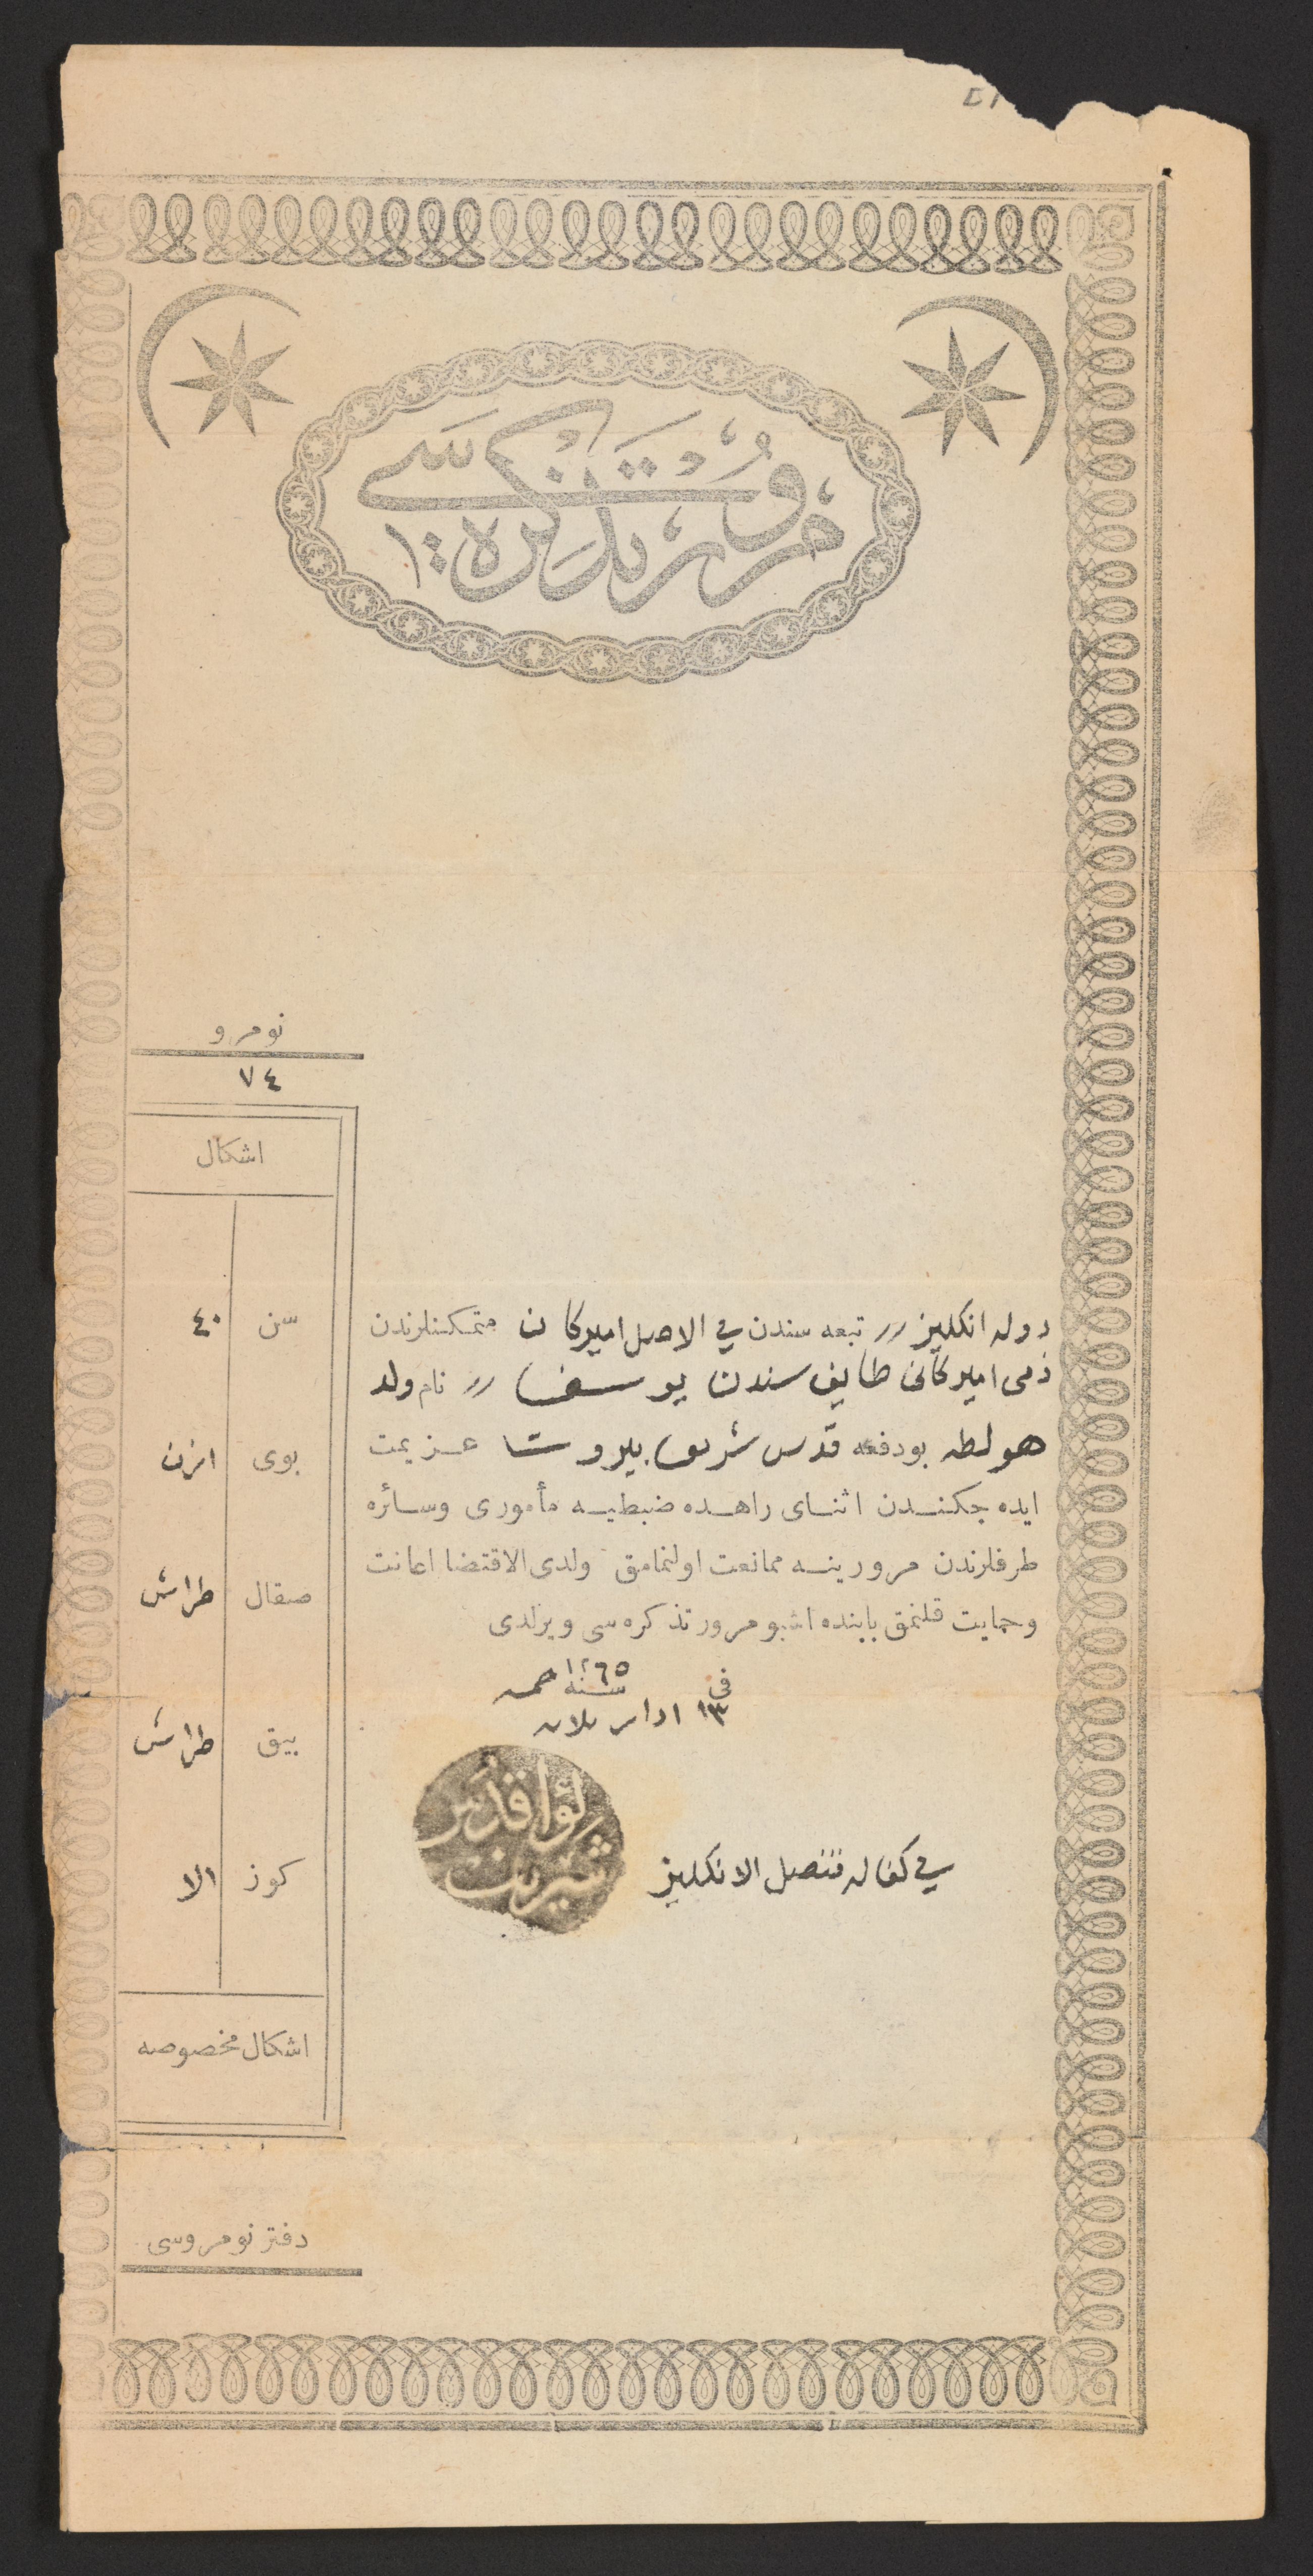 مرور تذكره سی
نومرو
٧٤
اشكال
سن ٤٠
بوی اوزن
صقال طراش
بیق طراش
كوز الا
اشكال مخصوصه
دفتر نومروسی
دوله انكليز تبعه سندن في الاصل اميركان متمكنلرندن
ذمی اميركانی طايفه سندن يوسف نام ولد
هولطه بودفعه قدس شريف بيروت عزيمت
ايده جكندن اثنای راهده ضبطيه مأموری وسائره
طرفلرندن مرورينه ممانعت اولنمامق ولدی الاقتضا اعانت
وحمايت قلنمق بابنده اشبو مرور تذكره سی ويرلدی
فی ١٣ سنه ١٢٦٥
في كفاله قنصل الانكليز
لواء قدس شريف